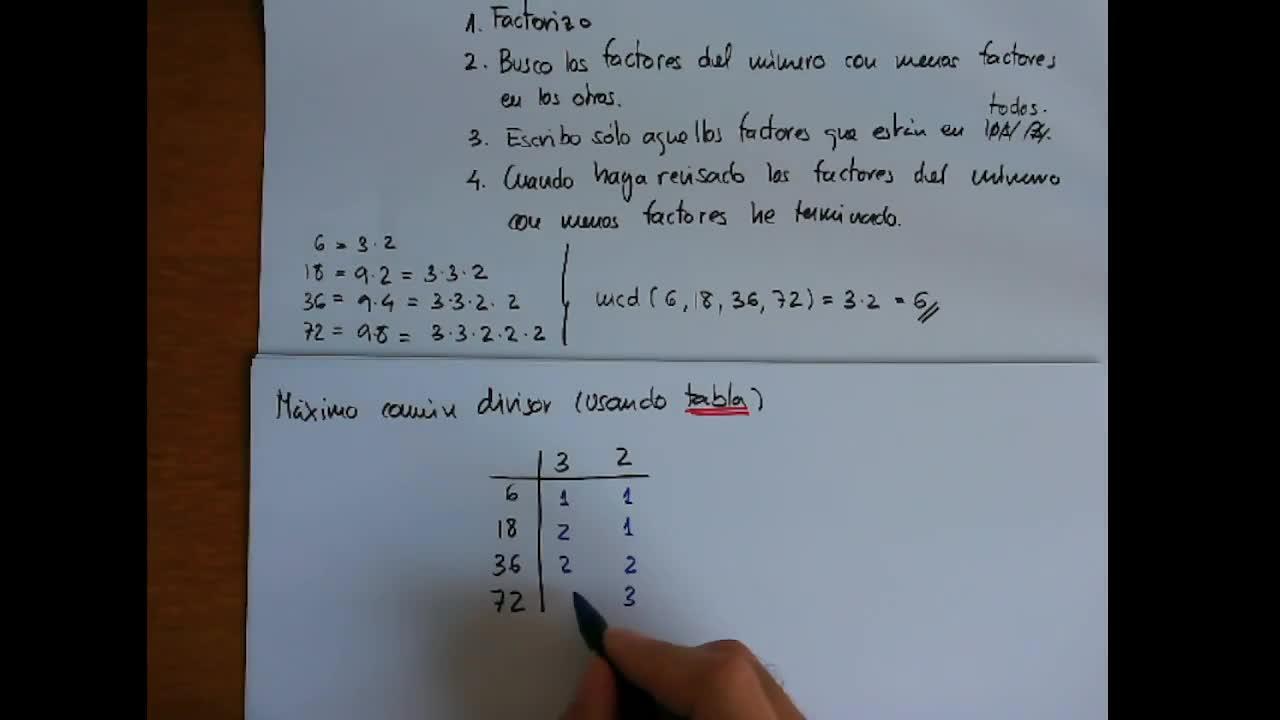 1. Factorizo
2. Busco los factores del número con menos factores
en los otros.
todos.
3. Escribo sólo aquellos factores que están en
4. Cuando haya revisado los factores del número
con menos factores he terminado.
6 = 3·2
18 = 9·2 = 3·3·2
36 = 9·4 = 3·3·2·2
72 = 9·8 = 3·3·2·2·2
mcd (6, 18, 36, 72) = 3·2 = 6
Máximo común divisor (usando tabla)
3 2
6 1 1
18 2 1
36 2 2
72 3